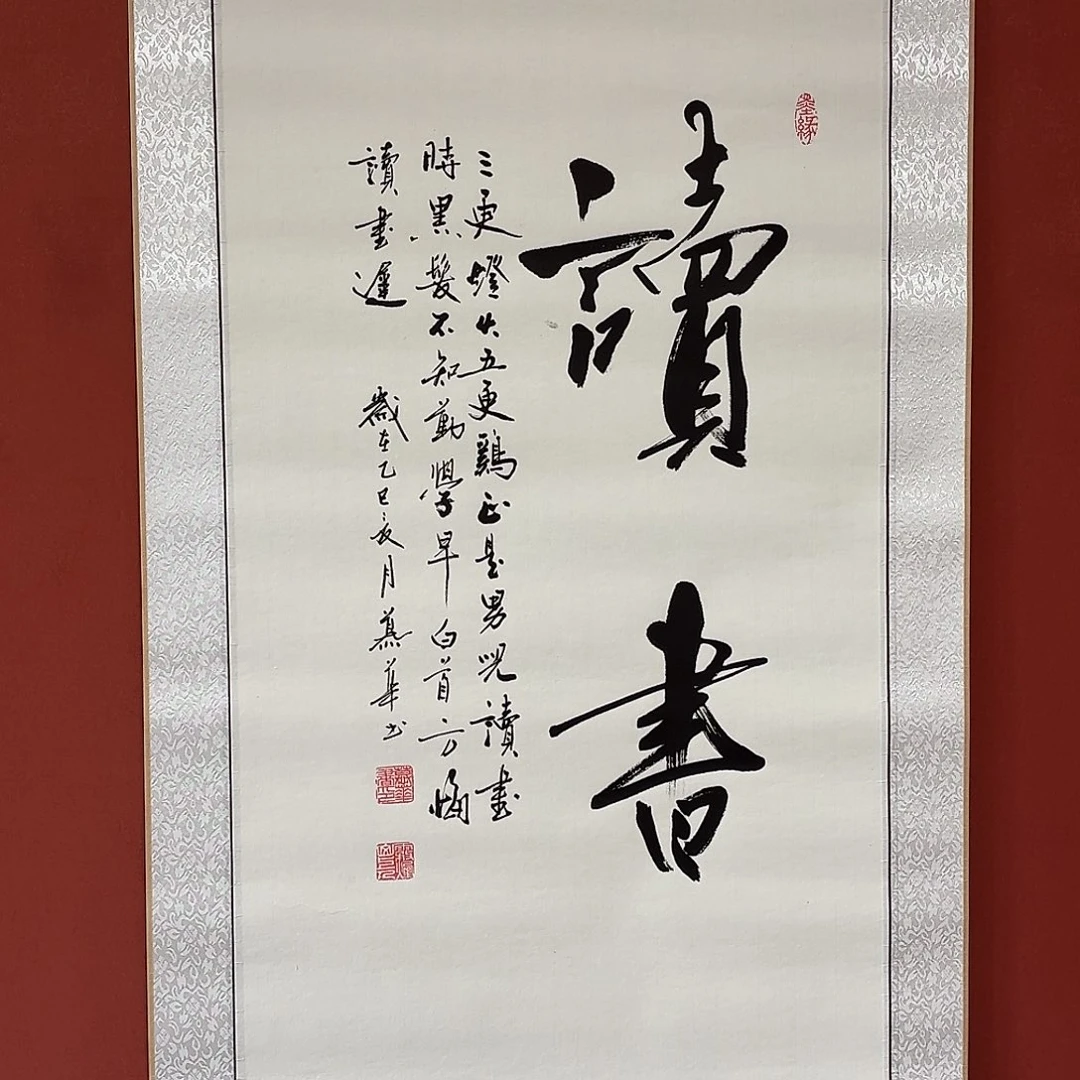 墨緣
讀書
三更燈火五更鷄正是男児讀書
時黒髮不知勤學早白首方悔
讀書遲
歲在乙巳亥月慕華书